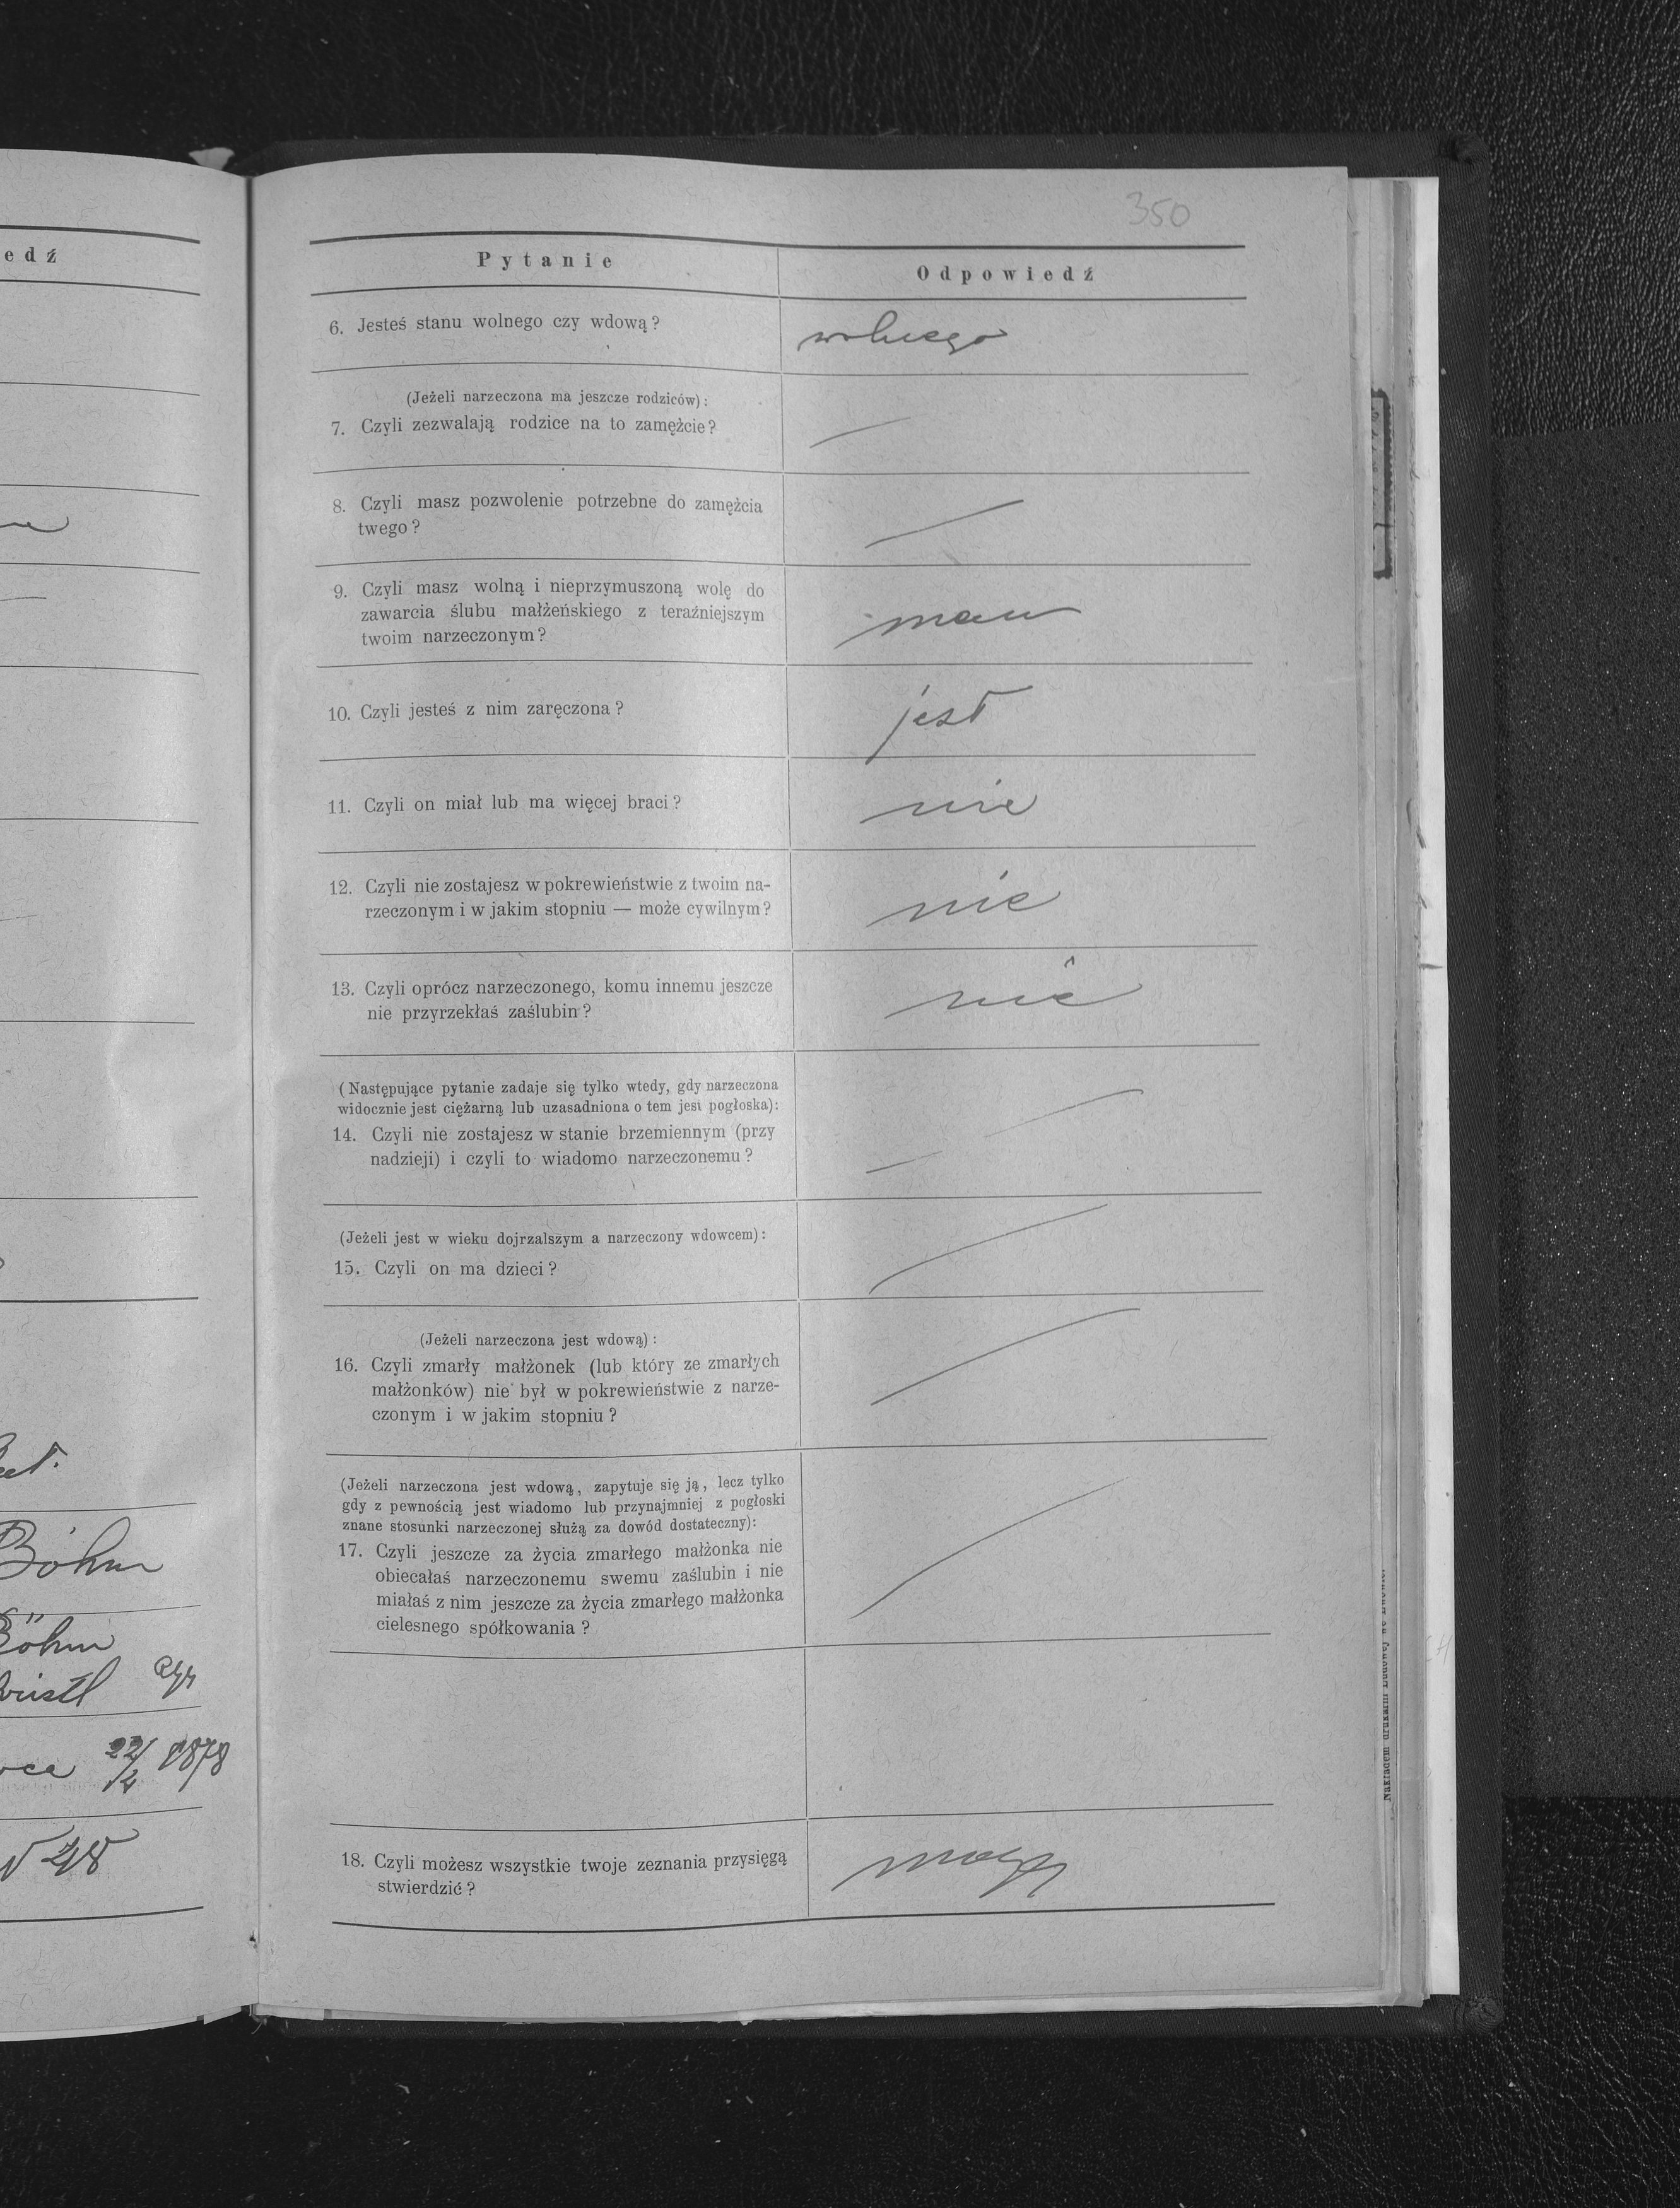 edź
et.
Böhm
Böhm
22/4 1878
350
Pytanie
Odpowiedź
6. Jesteś stanu wolnego czy wdową?
wolnego
(Jeżeli narzeczona ma jeszcze rodziców):
7. Czyli zezwalają rodzice na to zamężcie?
8. Czyli masz pozwolenie potrzebne do zamężcia
twego?
9. Czyli masz wolną i nieprzymuszoną wolę do
zawarcia ślubu małżeńskiego z teraźniejszym
twoim narzeczonym?
mam
10. Czyli jesteś z nim zaręczona?
jest
11. Czyli on miał lub ma więcej braci?
nie
12. Czyli nie zostajesz w pokrewieństwie z twoim na-
rzeczonym i w jakim stopniu — może cywilnym?
nie
13. Czyli oprócz narzeczonego, komu innemu jeszcze
nie przyrzekłaś zaślubin?
nie
(Następujące pytanie zadaje się tylko wtedy, gdy narzeczona
widocznie jest ciężarną lub uzasadniona o tem jest pogłoska):
14. Czyli nie zostajesz w stanie brzemiennym (przy
nadzieji) i czyli to wiadomo narzeczonemu?
(Jeżeli jest w wieku dojrzalszym a narzeczony wdowcem):
15. Czyli on ma dzieci?
(Jeżeli narzeczona jest wdową):
16. Czyli zmarły małżonek (lub który ze zmarłych
małżonków) nie był w pokrewieństwie z narze-
czonym i w jakim stopniu?
(Jeżeli narzeczona jest wdową, zapytuje się ją, lecz tylko
gdy z pewnością jest wiadomo lub przynajmniej z pogłoski
znane stosunki narzeczonej służą za dowód dostateczny):
17. Czyli jeszcze za życia zmarłego małżonka nie
obiecałaś narzeczonemu swemu zaślubin i nie
miałaś z nim jeszcze za życia zmarłego małżonka
cielesnego spółkowania?
18. Czyli możesz wszystkie twoje zeznania przysięgą
stwierdzić?
mogę
Nakładem drukarni Ludowej we Lwowie.